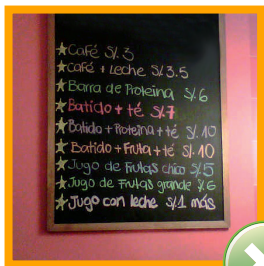 Café S/. 3
Café + Leche S/. 3.5
Barra de Proteina S/. 6
Batido + té S/. 7
Batido + Proteina + té S/. 10
Batido + Fruta + té S/. 10
Jugo de Frutas chico S/. 5
Jugo de Frutas grande S/. 6
Jugo con leche S/. 1 más